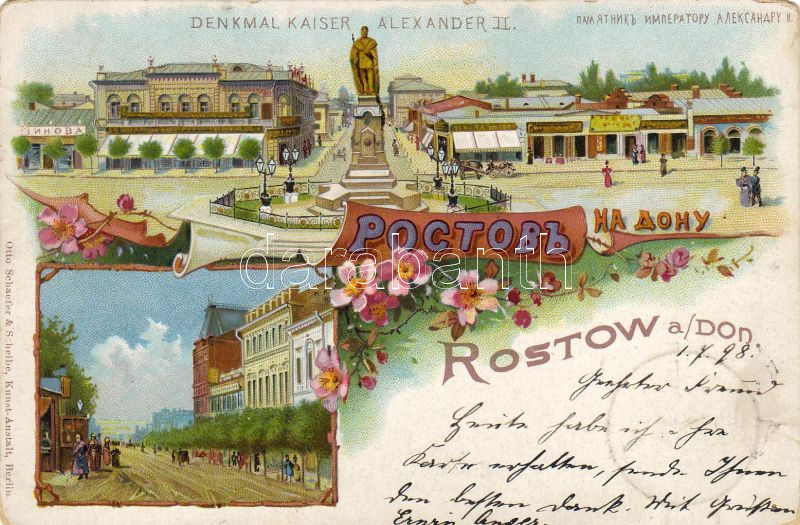 DENKMAL KAISER ALEXANDER II.
ПАМЯТНИКЪ ИМПЕРАТОРУ АЛЕКСАНДРУ II.
ШИНОВА
РОСТОВЪ НА ДОНУ
darabanth
ROSTOW a/DON.
1.7.98.
Geehrter Freund
Heute habe ich Ihre
Karte erhalten, sende Ihnen
den besten Dank. Mit Grüßen
Otto Schaefer & Scheibe, Kunst-Anstalt, Berlin.